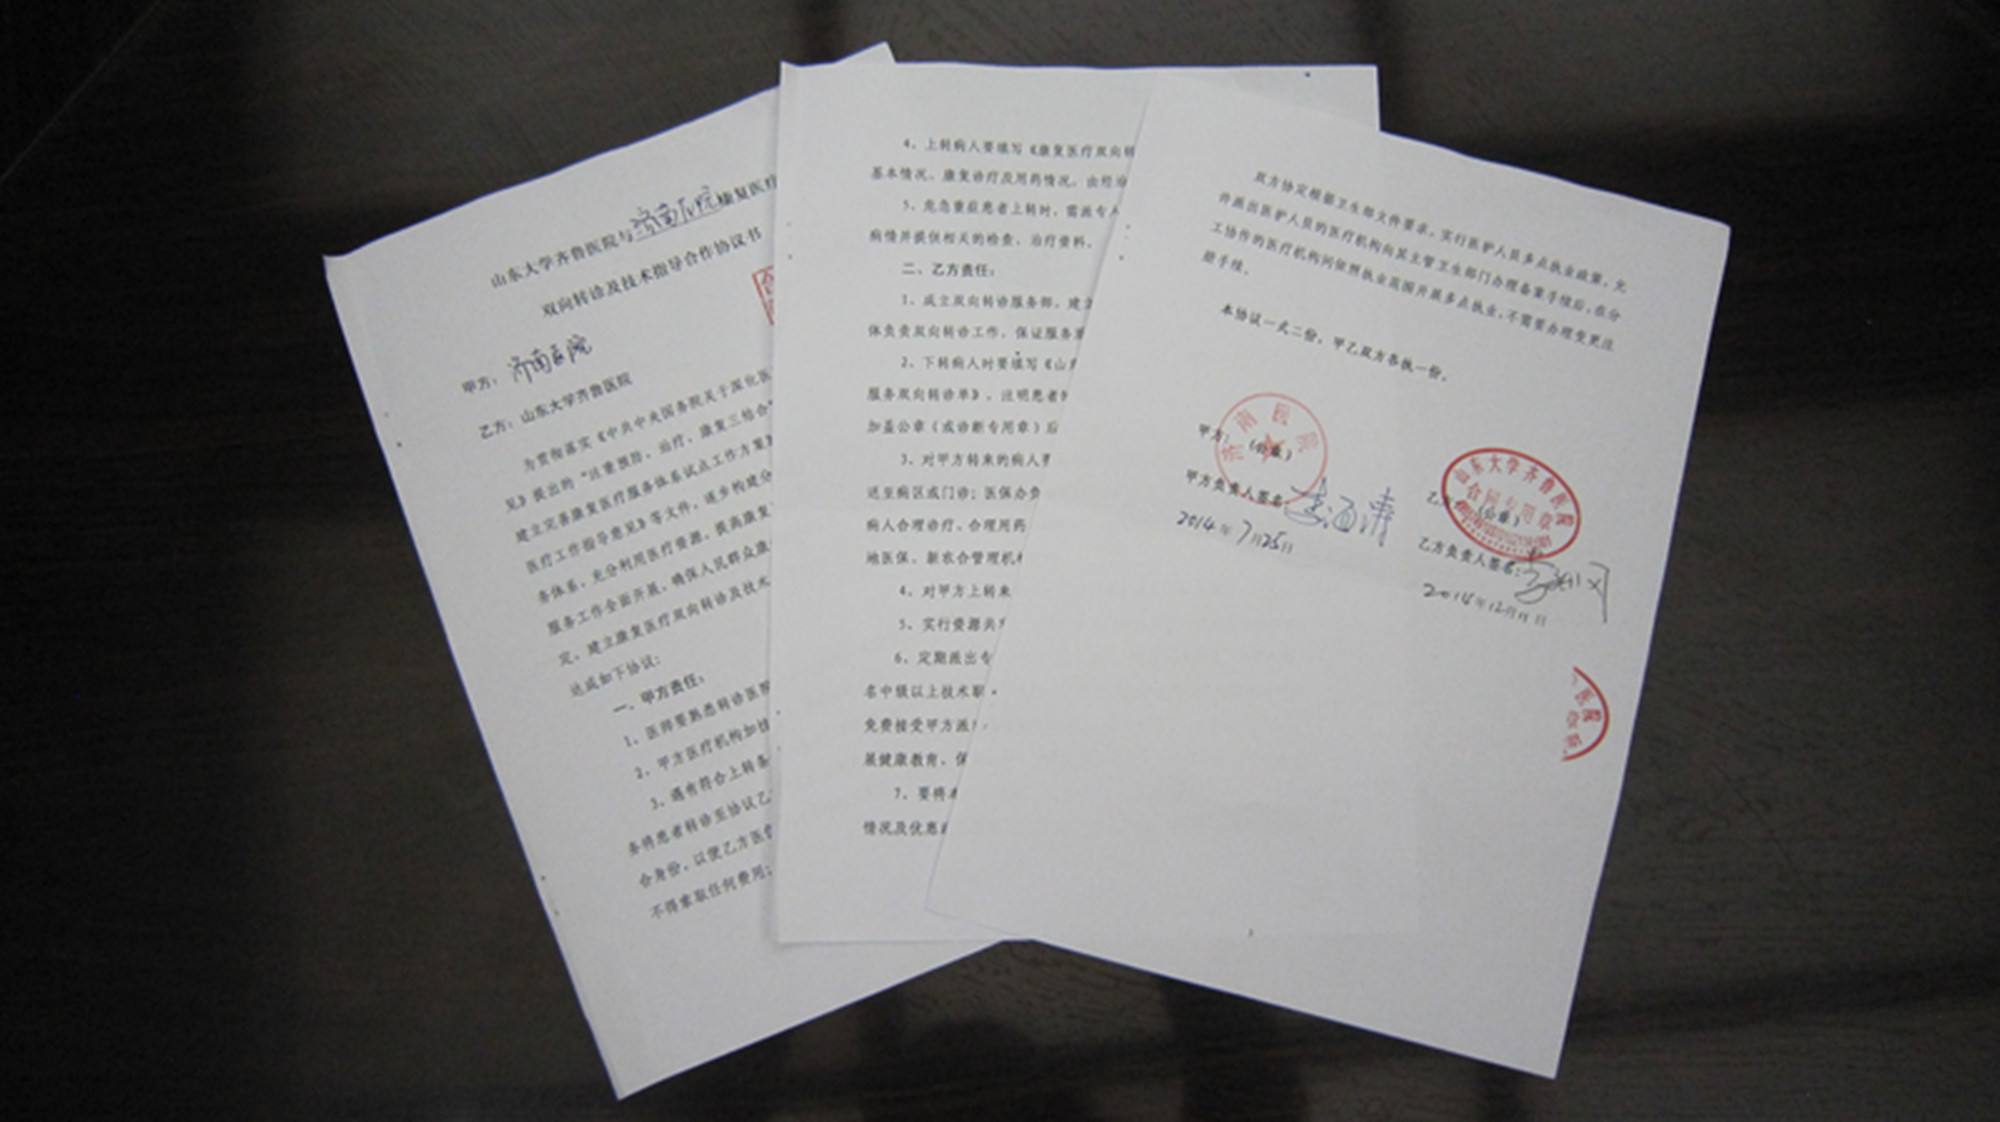 山东大学齐鲁医院与济南医院康复医疗
双向转诊及技术指导合作协议书
甲方：济南医院
乙方：山东大学齐鲁医院
为贯彻落实《中共中央国务院关于深化医
见》提出的“注重预防、治疗、康复三结合”
建立完善康复医疗服务体系试点工作方案》
医疗工作指导意见》等文件，逐步构建分
务体系，充分利用医疗资源，提高康复
服务工作全面开展，确保人民群众康
定，建立康复医疗双向转诊及技术
达成如下协议：
一、甲方责任：
1、医师要熟悉转诊医院
2、甲方医疗机构加挂
3、遇有符合上转条
务将患者转诊至协议乙
合身份，以便乙方医
不得索取任何费用；
4、上转病人要填写《康复医疗双向转
基本情况、康复诊疗及用药情况，由经治
5、危急重症患者上转时，需派专人
病情并提供相关的检查、治疗资料。
二、乙方责任：
1、成立双向转诊服务部，建立
体负责双向转诊工作，保证服务
2、下转病人时要填写《山东
服务双向转诊单》，注明患者
加盖公章（或诊断专用章）后
3、对甲方转来的病人要
送至病区或门诊；医保办负
病人合理诊疗、合理用药
地医保、新农合管理机构
4、对甲方上转来
5、实行资源共享
6、定期派出专
名中级以上技术职
免费接受甲方派
展健康教育、保
7、要将本
情况及优惠
双方协定根据卫生部文件要求，实行医护人员多点执业政策，允
许派出医护人员的医疗机构向其主管卫生部门办理备案手续后，在分
工协作的医疗机构间依照执业范围开展多点执业，不需要办理变更注
册手续。
本协议一式二份，甲乙双方各执一份。
甲方：（公章）
济南医院
甲方负责人签名：
2014年7月25日
乙方：（公章）
山东大学齐鲁医院
合同专用章
乙方负责人签名：
2014年12月11日